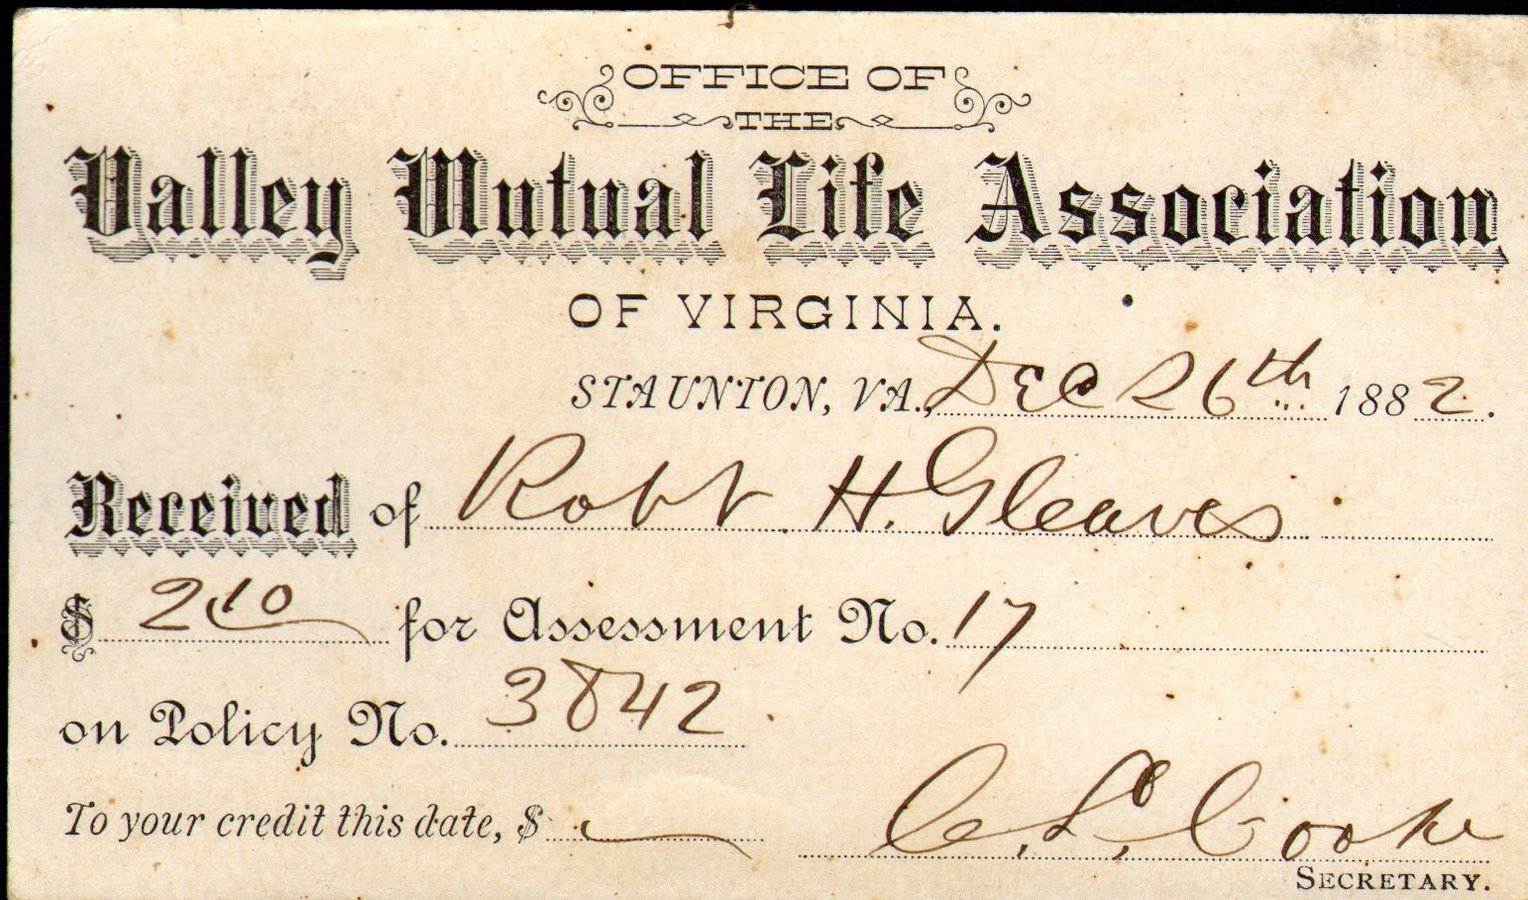 OFFICE OF
THE
Valley Mutual Life Association
OF VIRGINIA.
STAUNTON, VA., Dec 26th 1882.
Received of Robt H. Gleaves
$ 2 10 for Assessment No. 17
on Policy No. 3842
To your credit this date, $
C. L. Cooke
SECRETARY.